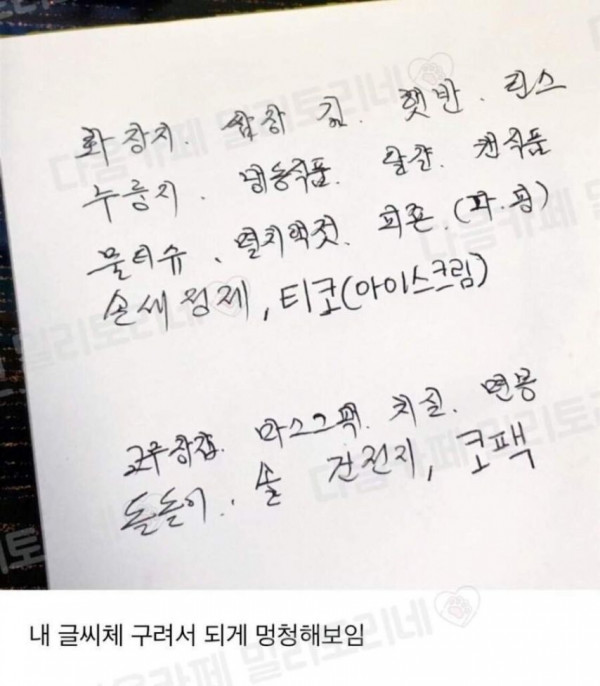 화장지. 쌈장 김. 햇반. 린스
누룽지. 냉동식품. 달걀. 캔식품
물티슈. 멸치액젓. 피죤.(파.핑)
손세정제, 티코(아이스크림)
고무장갑. 마스크팩. 치실. 면봉
돌돌이. 솔 건전지, 코팩
내 글씨체 구려서 되게 멍청해보임
다음카페 밀리토리네